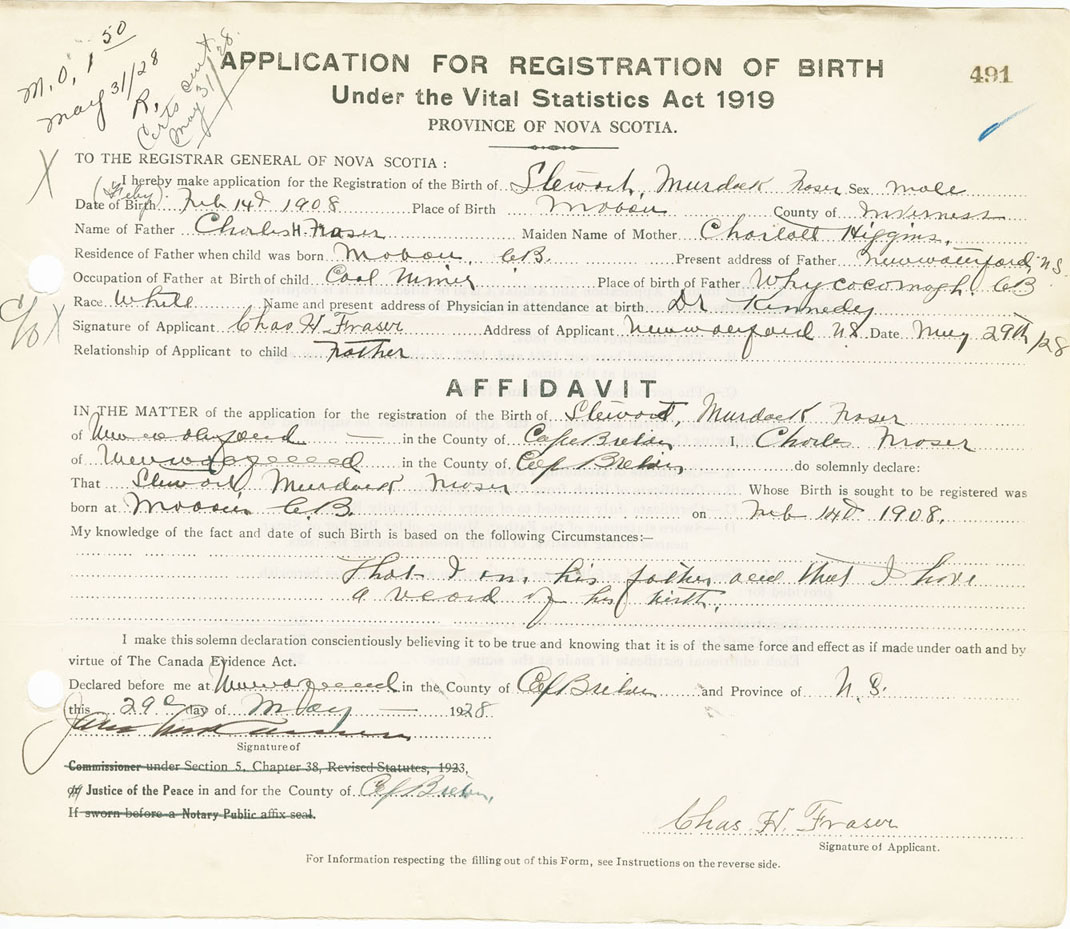 M.O. 1.50
May 31/28
R.
Certs sent
May 31/28
APPLICATION FOR REGISTRATION OF BIRTH
491
Under the Vital Statistics Act 1919
PROVINCE OF NOVA SCOTIA.
X
TO THE REGISTRAR GENERAL OF NOVA SCOTIA :
I hereby make application for the Registration of the Birth of Stewart, Murdock Fraser Sex Male
(Feby)
Date of Birth Feb 14th 1908 Place of Birth Mabou County of Inverness
Name of Father Charles H. Fraser Maiden Name of Mother Charlott Higgins.
Residence of Father when child was born Mabou, C.B. Present address of Father Newwaterford, N.S.
Occupation of Father at Birth of child Coal Miner Place of birth of Father Whycocomagh. C.B
Race White Name and present address of Physician in attendance at birth Dr Kennedy
c/o X
Signature of Applicant Chas H. Fraser Address of Applicant Newwaterford N.S. Date May 29th/28
Relationship of Applicant to child Father
AFFIDAVIT
IN THE MATTER of the application for the registration of the Birth of Stewart, Murdock Fraser
of New Waterford in the County of Cape Breton I, Charles Fraser
of New Waterford in the County of Cape Breton do solemnly declare:
That Stewart Murdock Fraser Whose Birth is sought to be registered was
born at Mabou C.B. on Feb 14th 1908.
My knowledge of the fact and date of such Birth is based on the following Circumstances:—
That I am his father and that I have
a record of his birth.
I make this solemn declaration conscientiously believing it to be true and knowing that it is of the same force and effect as if made under oath and by
virtue of The Canada Evidence Act.
Declared before me at New Waterford in the County of Cape Breton and Province of N.S.
this 29th day of May 1928
Signature of
Commissioner under Section 5, Chapter 38, Revised Statutes, 1923,
Justice of the Peace in and for the County of Cape Breton,
If sworn before a Notary Public affix seal.
Chas H. Fraser
Signature of Applicant.
For Information respecting the filling out of this Form, see Instructions on the reverse side.